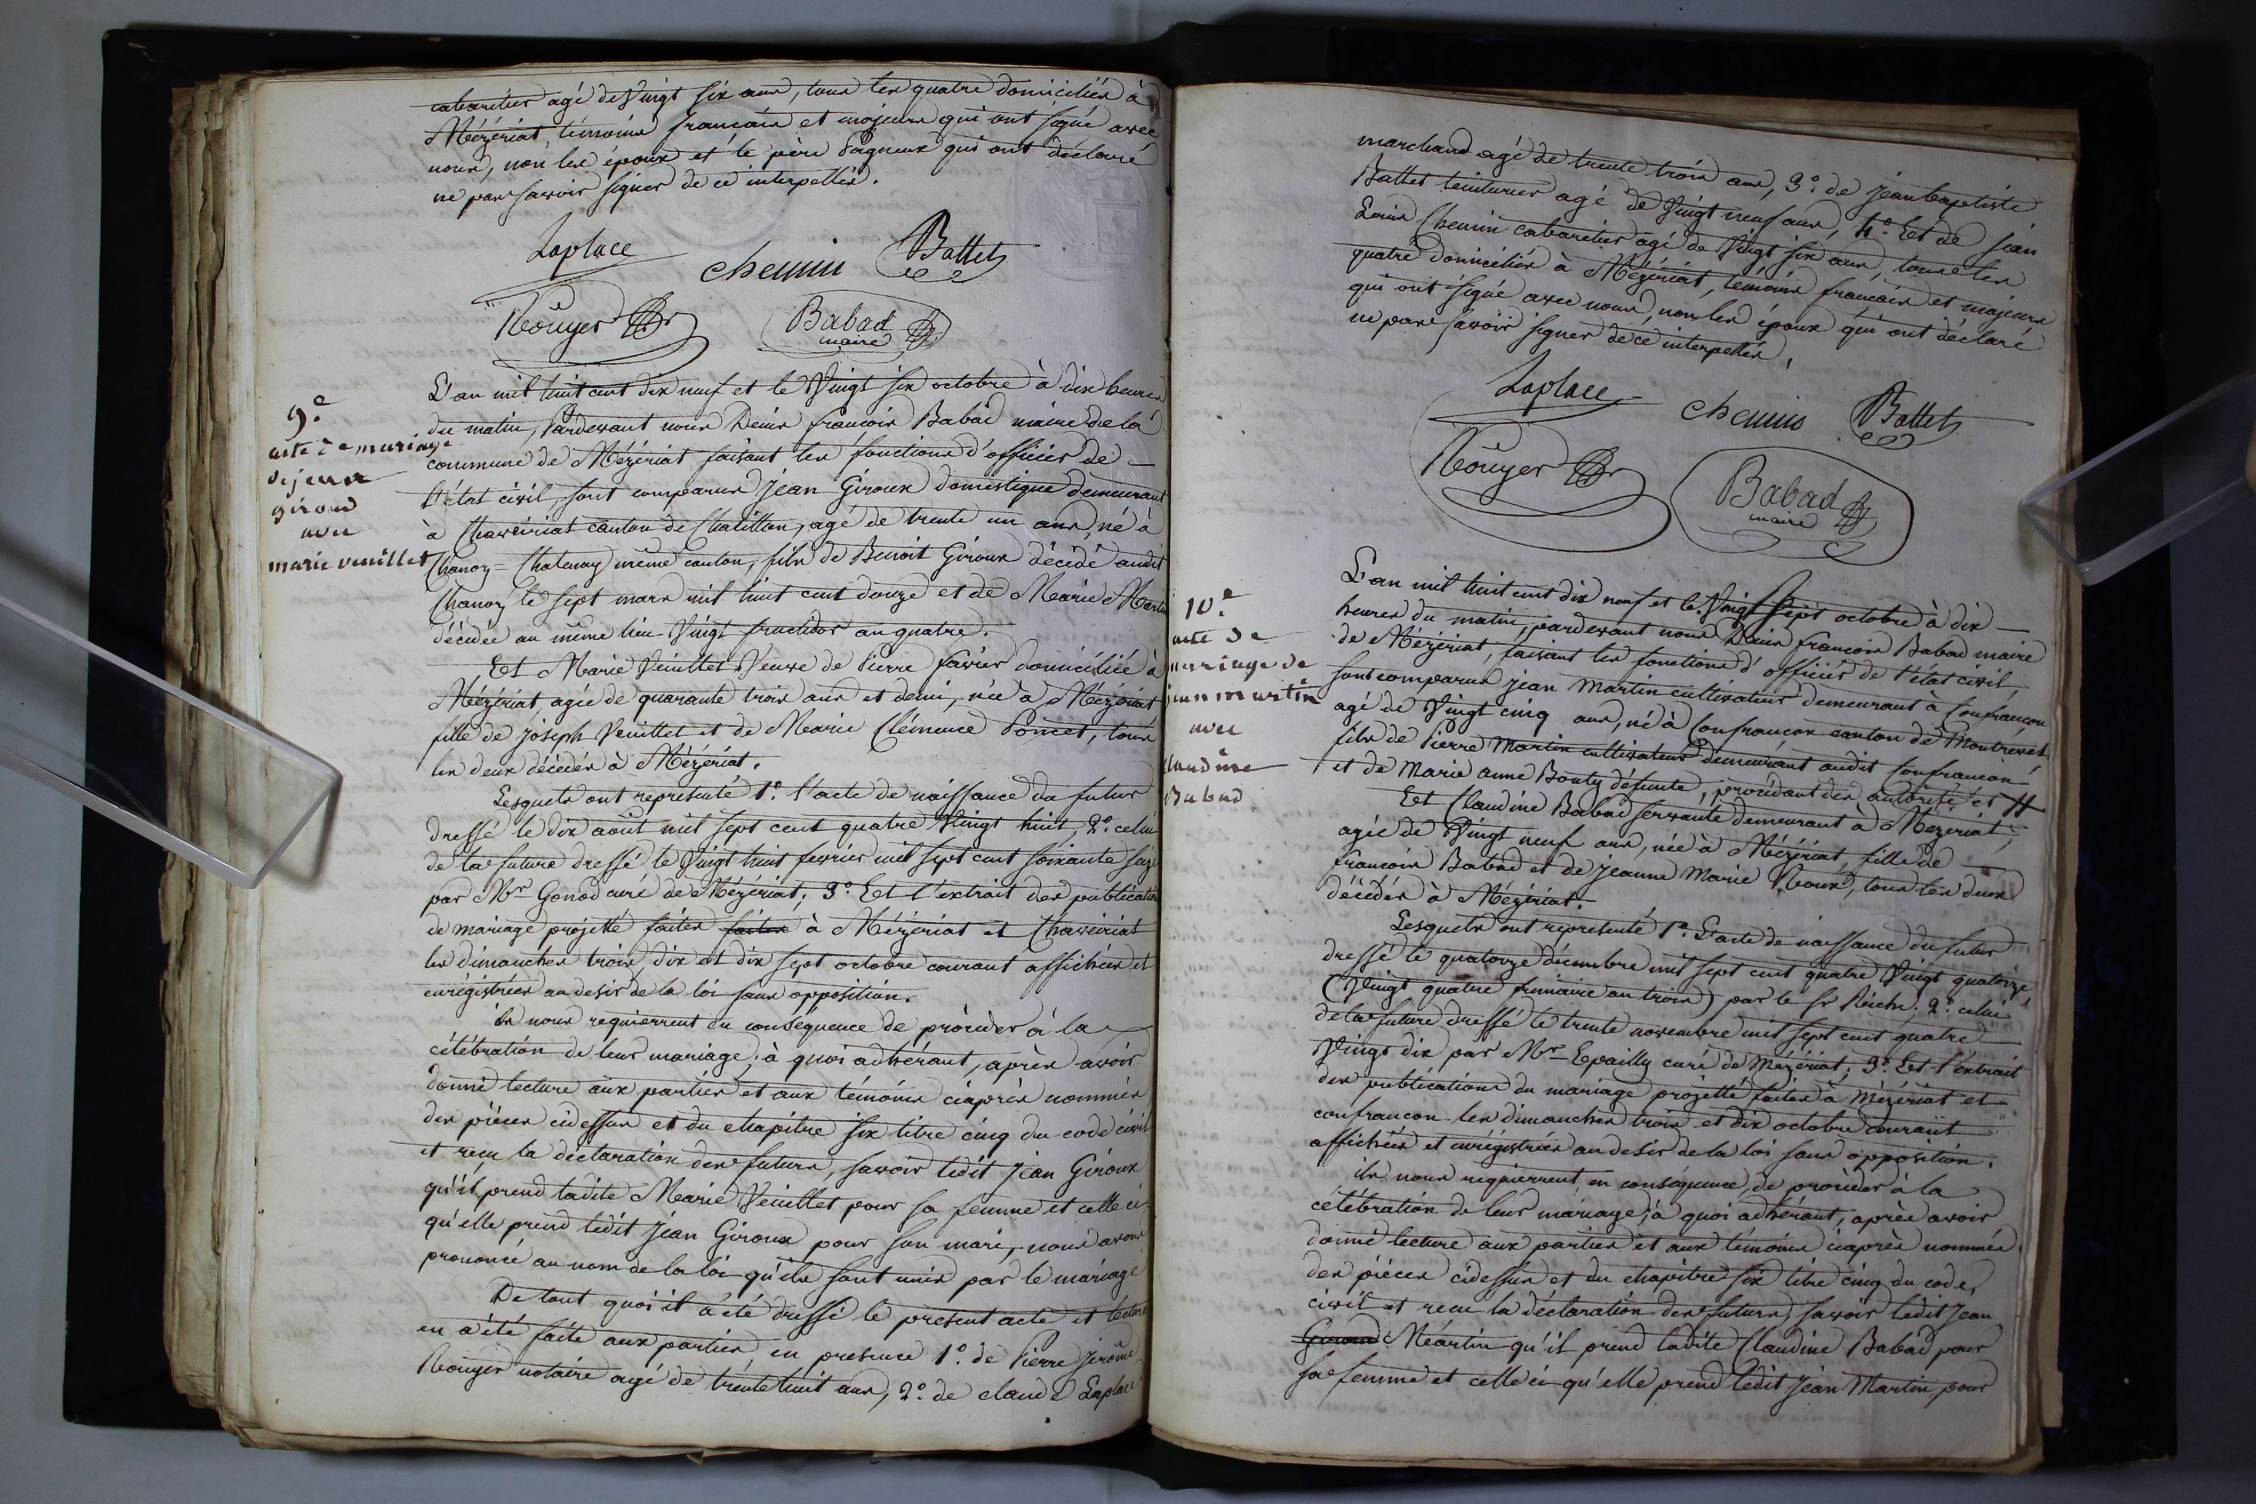 cabaretier agé de Vingt six ans, tous les quatre domiciliés à
Mézériat témoins francais et majeurs qui ont signé avec
nous, non les époux et le père Pagneux qui ont déclaré
ne pas savoir signer de ce interpellés.
Laplace
chemin
Battet
Rouyer
Babad
maire
9.e
acte de mariage
de jean
giroud
avec
marie veuillet
L'an mil huit cent dix neuf et le Vingt six octobre à dix heures
du matin, Pardevant nous Denis francois Babad maire de la
commune de Mézériat faisant les fonctions d'officier de
l'état civil, sont comparus Jean Giroux domestique demeurant
à Chaveiriat canton de Chatillon, agé de trente un ans, né à
Chanoz=Chatenay même canton, fils de Benoit Giroux décédé audit
Chanoz le sept mars mil huit cent douze et de Marie Martin
décédée au même lieu Vingt fructidor an quatre.
Et Marie Veuillet Veuve de Pierre favier domiciliée à
Mézériat, agée de quarante trois ans et demi, née à Mézériat
fille de joseph Veuillet et de Marie Clémence Poncet, tous
les deux décédés à Mézériat.
Lesquels ont représenté 1.o l'acte de naissance du futur
dressé le dix août mil sept cent quatre Vingt huit, 2.o celui
de la future dressé le Vingt huit fevrier mil sept cent soixante seize
par Mr Gonod curé de Mézériat, 3.o Et l'extrait des publications
de mariage projetté faites faites à Mézériat et Chaveiriat
les dimanches trois, dix et dix sept octobre courant affichées et
enrégistrées au desir de la loi sans opposition.
ils nous requierrent en conséquence de procéder à la
célébration de leur mariage, à quoi adhérant, après avoir
donné lecture aux parties et aux témoins ciaprès nommés
des pièces cidessus et du chapitre six titre cinq du code civil
et recu la déclaration des futurs, savoir ledit Jean Giroux
qu'il prend ladite Marie Veuillet pour sa femme et celle ci
qu'elle prend ledit Jean Giroux pour son mari, nous avons
prononcé au nom de la loi qu'ils sont unis par le mariage
De tout quoi il a été dressé le present acte et lecture
en a été faite aux parties en presence 1.o de Pierre Jerôme
Rouyer notaire agé de trente huit ans, 2.o de claude Laplace
marchand agé de trente trois ans, 3.o de jean baptiste
Battet teinturier agé de Vingt neuf ans, 4.o Et de jean
Louis Chemin cabaretier agé de Vingt six ans, tous les
quatre domiciliés à Mézériat, témoins francais et majeurs
qui ont signé avec nous, non les époux qui ont déclaré
ne pas savoir signer de ce interpellés.
Laplace
chemin
Battet
Rouyer
Babad
maire
10.e
acte de
mariage de
jean martin
avec
claudine
Babad
L'an mil huit cent dix neuf et le Vingt sept octobre à dix
heures du matin, pardevant nous Denis francois Babad maire
de Mézériat, faisant les fonctions d'officier de l'état civil,
sont comparus Jean Martin cultivateur demeurant à Confrançon
agé de Vingt cinq ans, né à Confrançon canton de Montrevel
fils de Pierre Martin cultivateur demeurant audit Confrancon
et de Marie anne Bouty défunte, procédant des autorité et #
Et Claudine Babad servante demeurant à Mézériat,
agée de Vingt neuf ans, née à Mézériat, fille de
francois Babad et de Jeanne Marie Roux, tous les deux
décédés à Mézériat.
Lesquels ont représenté 1.o L'acte de naissance du futur
dressé le quatorze décembre mil sept cent quatre Vingt quatorze
(Vingt quatre frimaire an trois) par le Sr 2.o celui
de la future dressé le trente novembre mil sept cent quatre
Vingt dix par Mr Epailly curé de Mézériat; 3.o Et l'extrait
des publications du mariage projetté faites à Mézériat et
confrancon les dimanches trois et dix octobre courant
affichées et enrégistrées au desir de la loi sans opposition.
ils nous requierrent en conséquence, de procéder à la
célébration de leur mariage; à quoi adhérant, après avoir
donné lecture aux parties et aux témoins ciaprès nommés
des pièces cidessus et du chapitre six titre cinq du code
civil et recu la déclaration des futurs, savoir ledit Jean
Giroud Martin qu'il prend ladite Claudine Babad pour
sa femme et celle ci qu'elle prend ledit Jean Martin pour